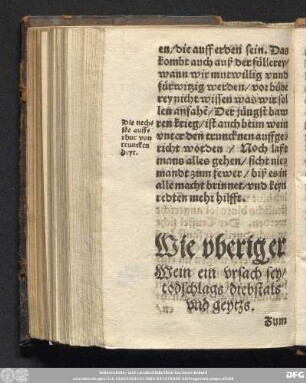 en/die auff erden sein. Das
kombt auch auß der füllerey/
wann wir mutwülig vnnd
fürwitzig werden/ vor bübe
rey nicht wissen was wir sol
len anfahē/ Der jüngst baw
ren krieg/ ist auch beim wein
vnter den trunckenen auffge-
richt worden / Noch last
mans alles gehen/ sicht nie-
mandt zum fewer/ biß es in
alle macht brinnet/ vnd keyn
redten mehr hilfft.
Die nechs
ste auff-
rhur von
truncken
heyt.
Wie vberiger
Wein ein vrsach sey/
todschlags/ diebstals
vnd geytzs.
Zum